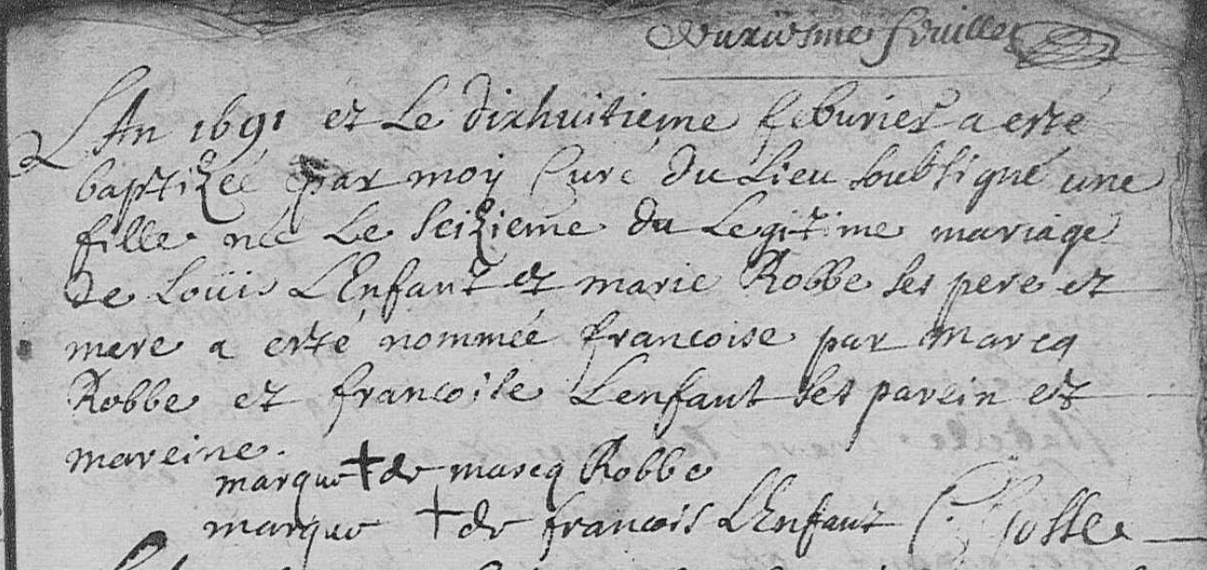 Deuxiesme feuillet
L'An 1691 et Le dixhuitieme feburier a esté
baptizée par moy Curé du Lieu soubsigné une
fille née Le seizieme du Legitime mariage
de Loüis L'Enfant et marie Robbe ses pere et
mere a esté nommée francoise par Marcq
Robbe et francoise Lenfant ses parein et
mareine.
marque + de marcq Robbe
marque + de francois L'Enfant